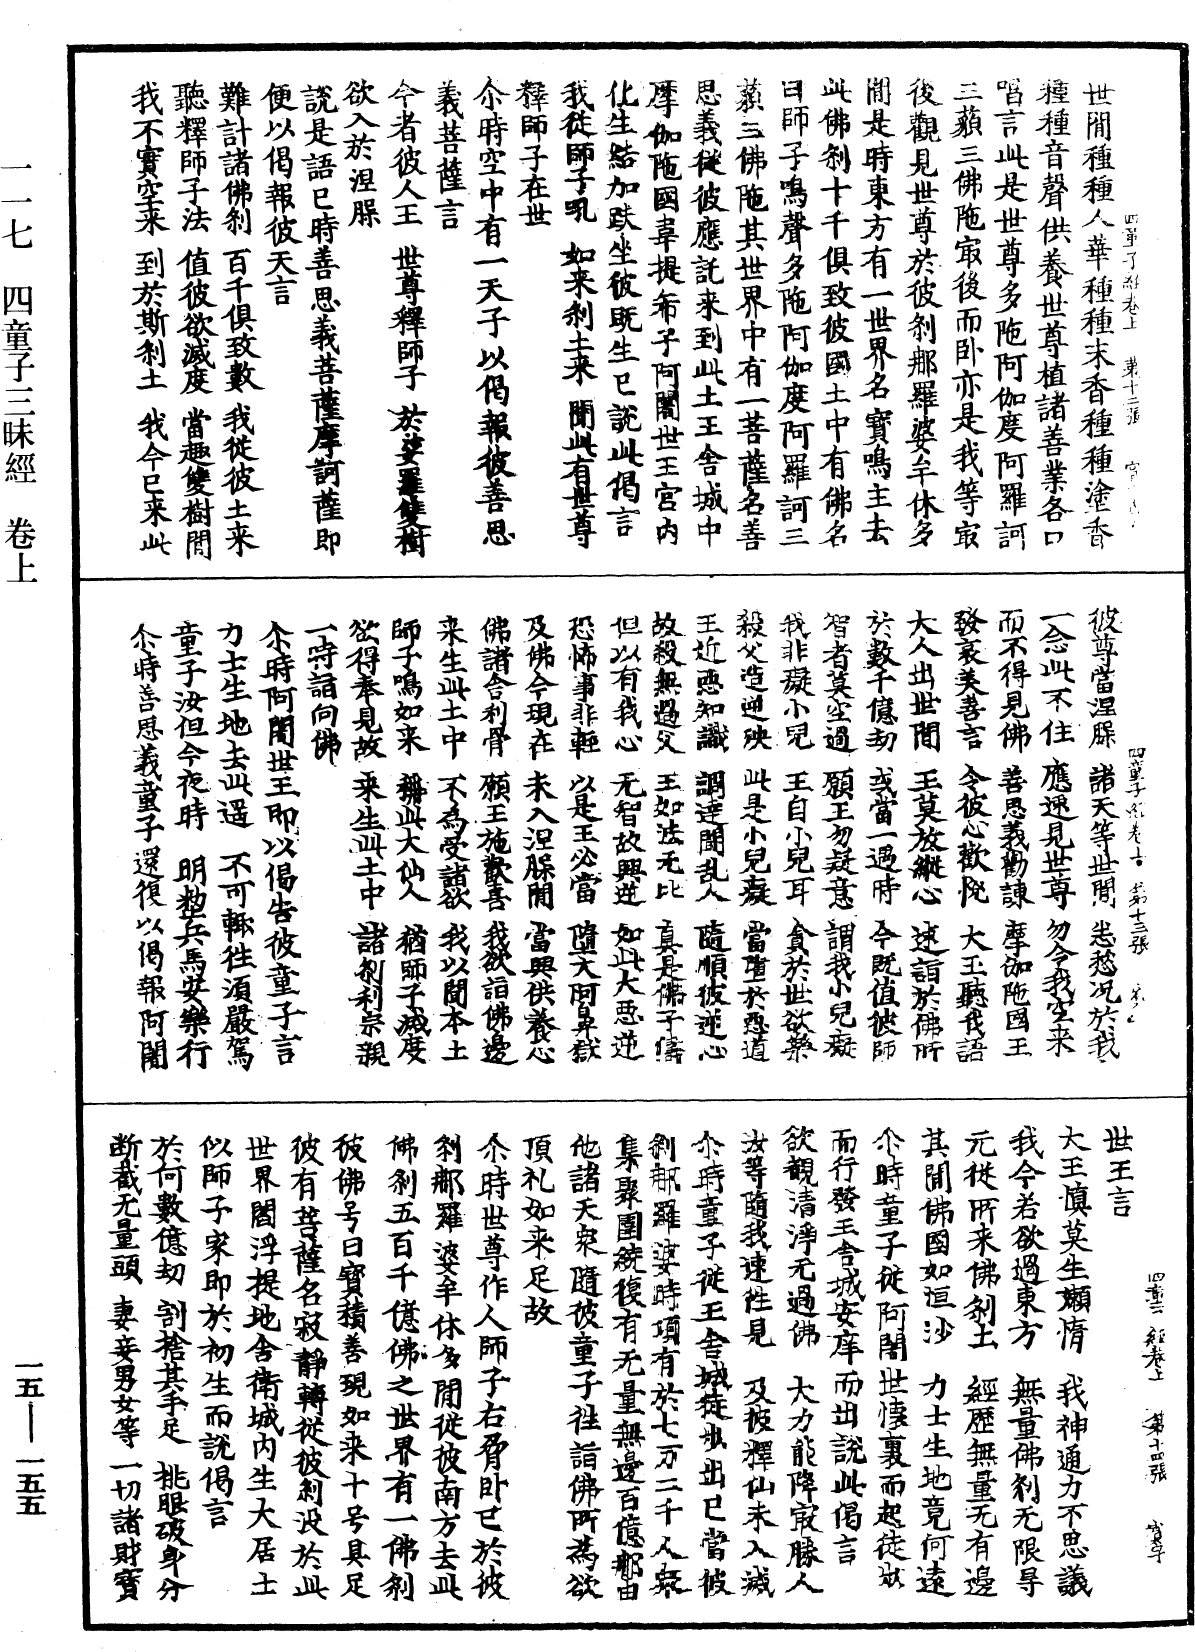 一一七　四童子三昧經　卷上
一五—一五五
世間種種人華種種末香種種塗香
種種音聲供養世尊植諸善業各口
唱言此是世尊多陁阿伽度阿羅訶
三藐三佛陁㝡後而卧亦是我等㝡
後觀見世尊於彼刹那羅婆牟休多
閒是時東方有一世界名寶鳴主去
此佛刹十千俱致彼國土中有佛名
曰師子鳴聲多陁阿伽度阿羅訶三
藐三佛陁其世界中有一菩薩名善
思義從彼應託來到此土王舍城中
摩伽陁國韋提希子阿闍世王宮内
化生結加趺坐彼既生已說此偈言
我從師子吼　如來刹土來　聞此有世尊
釋師子在世
尒時空中有一天子以偈報彼善思
義菩薩言
今者彼人王　世尊釋師子　於娑羅雙樹
欲入於涅脲
說是語已時善思義菩薩摩訶薩即
便以偈報彼天言
難計諸佛刹　百千俱致數　我從彼土來
聽釋師子法　值彼欲滅度　當趣雙樹閒
我不實空來　到於斯刹土　我今已來此
四童子經卷上　第十三張
彼尊當涅脲　諸天等世閒　悲愁况於我
一念此不住　應速見世尊　勿令我空來
而不得見佛　善思義勸諫　摩伽陁國王
發哀美善言　令彼心歡悅　大王聽我語
大人出世閒　王莫放縱心　速詣於佛所
於數千億劫　或當一遇時　今既值彼師
智者莫空過　願王勿疑意　謂我小兒癡
我非癡小兒　王自小兒耳　貪於世欲樂
殺父造逆殃　此是小兒癡　當墮於惡道
王近惡知識　調達閒乱人　隨順彼逆心
故殺無過父　王如法无比　真是佛子儔
但以有我心　无智故興逆　如此大惡逆
恐怖事非輕　以是王必當　墮大阿鼻獄
及佛今現在　未入涅脲閒　當興供養心
佛諸舍利骨　願王施歡喜　我欲詣佛邊
來生此土中　不為受諸欲　我以聞本土
師子鳴如來　稱此大仙人　猶師子滅度
欲得奉見故　來生此土中　諸刹利宗親
一時詣向佛
尒時阿闍世王即以偈告彼童子言
力士生地去此遥　不可輒往須嚴駕
童子汝但今夜時　明整兵馬安樂行
尒時善思義童子還復以偈報阿闍
世王言
大王慎莫生嬾惰　我神通力不思議
我今若欲過東方　無量佛刹无限尋
元從所來佛刹土　經歷無量无有邊
其閒佛國如洹沙　力士生地竟何遠
尒時童子從阿闍世懷裏而起徒步
而行發王舍城安庠而出說此偈言
欲觀清淨无過佛　大力能降㝡勝人
汝等隨我速性見　及彼釋仙未入滅
尒時童子從王舍城徒步出已當彼
刹那羅婆時項有於七万二千人衆
集聚圍繞復有无量無邊百億那由
他諸天衆隨彼童子往詣佛所為欲
頂礼如來足故
尒時世尊作人師子右脅卧已於彼
刹那羅婆牟休多閒從彼南方去此
佛刹五百千億佛之世界有一佛刹
彼佛号曰寶積善現如來十号具足
彼有菩薩名寂靜轉從彼刹没於此
世界閻浮提地舍衛城内生大居士
似師子家即於初生而說偈言
於何數億劫　割捨其手足　挑眼破身分
斷截无量頭　妻妾男女等　一切諸財寶